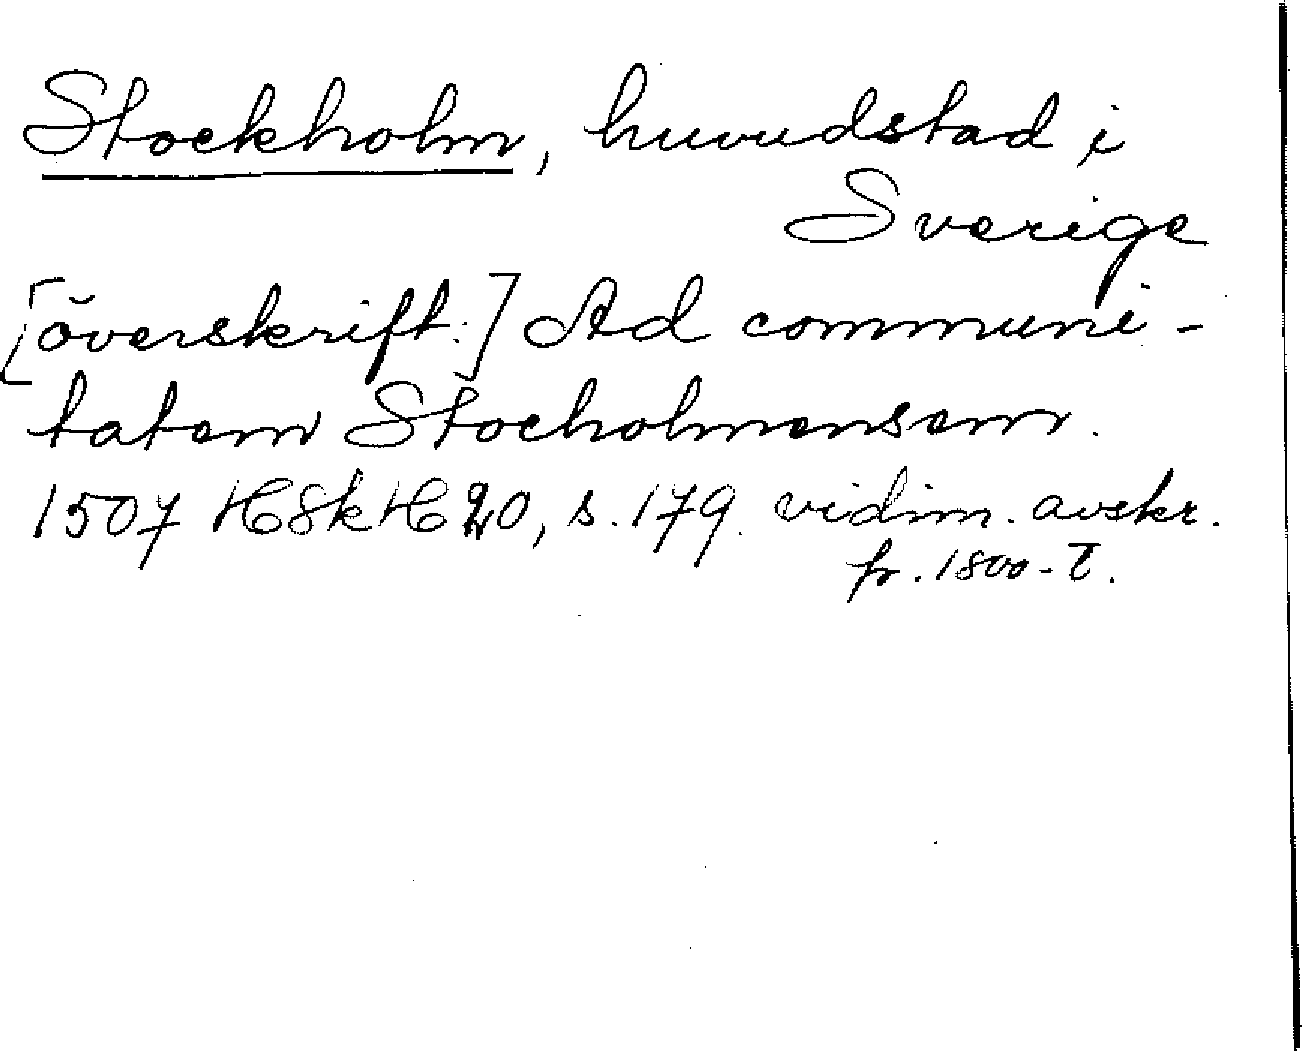 Stockholm, huvudstad i
Sverige
[överskrift:] Ad communi-
tatem Stocholmensem.
1507 HSkH 20, s. 179. vidim. avskr.
fr. 1800-t.